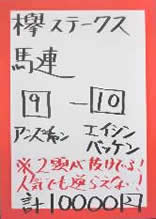 欅ステークス
馬連
9 - 10
アンズチャン エイシン
バッケン
※2頭が抜けてる!
人気でも逆らえない!
計10000円